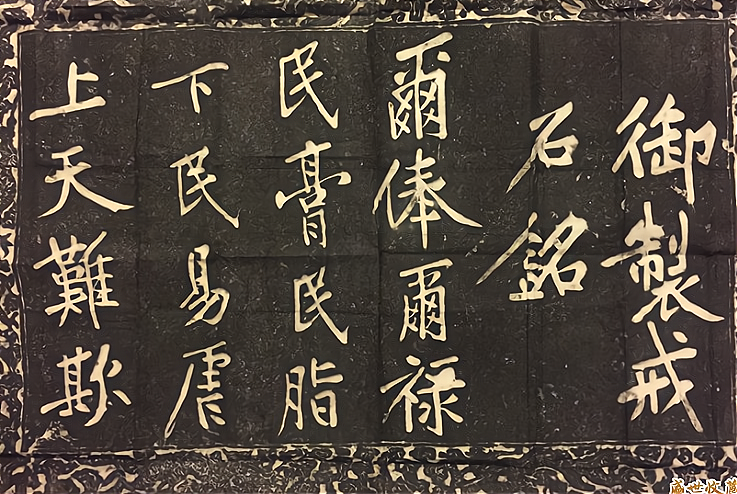 御製戒
石銘
爾俸爾禄
民膏民脂
下民易虐
上天難欺
盛世收藏